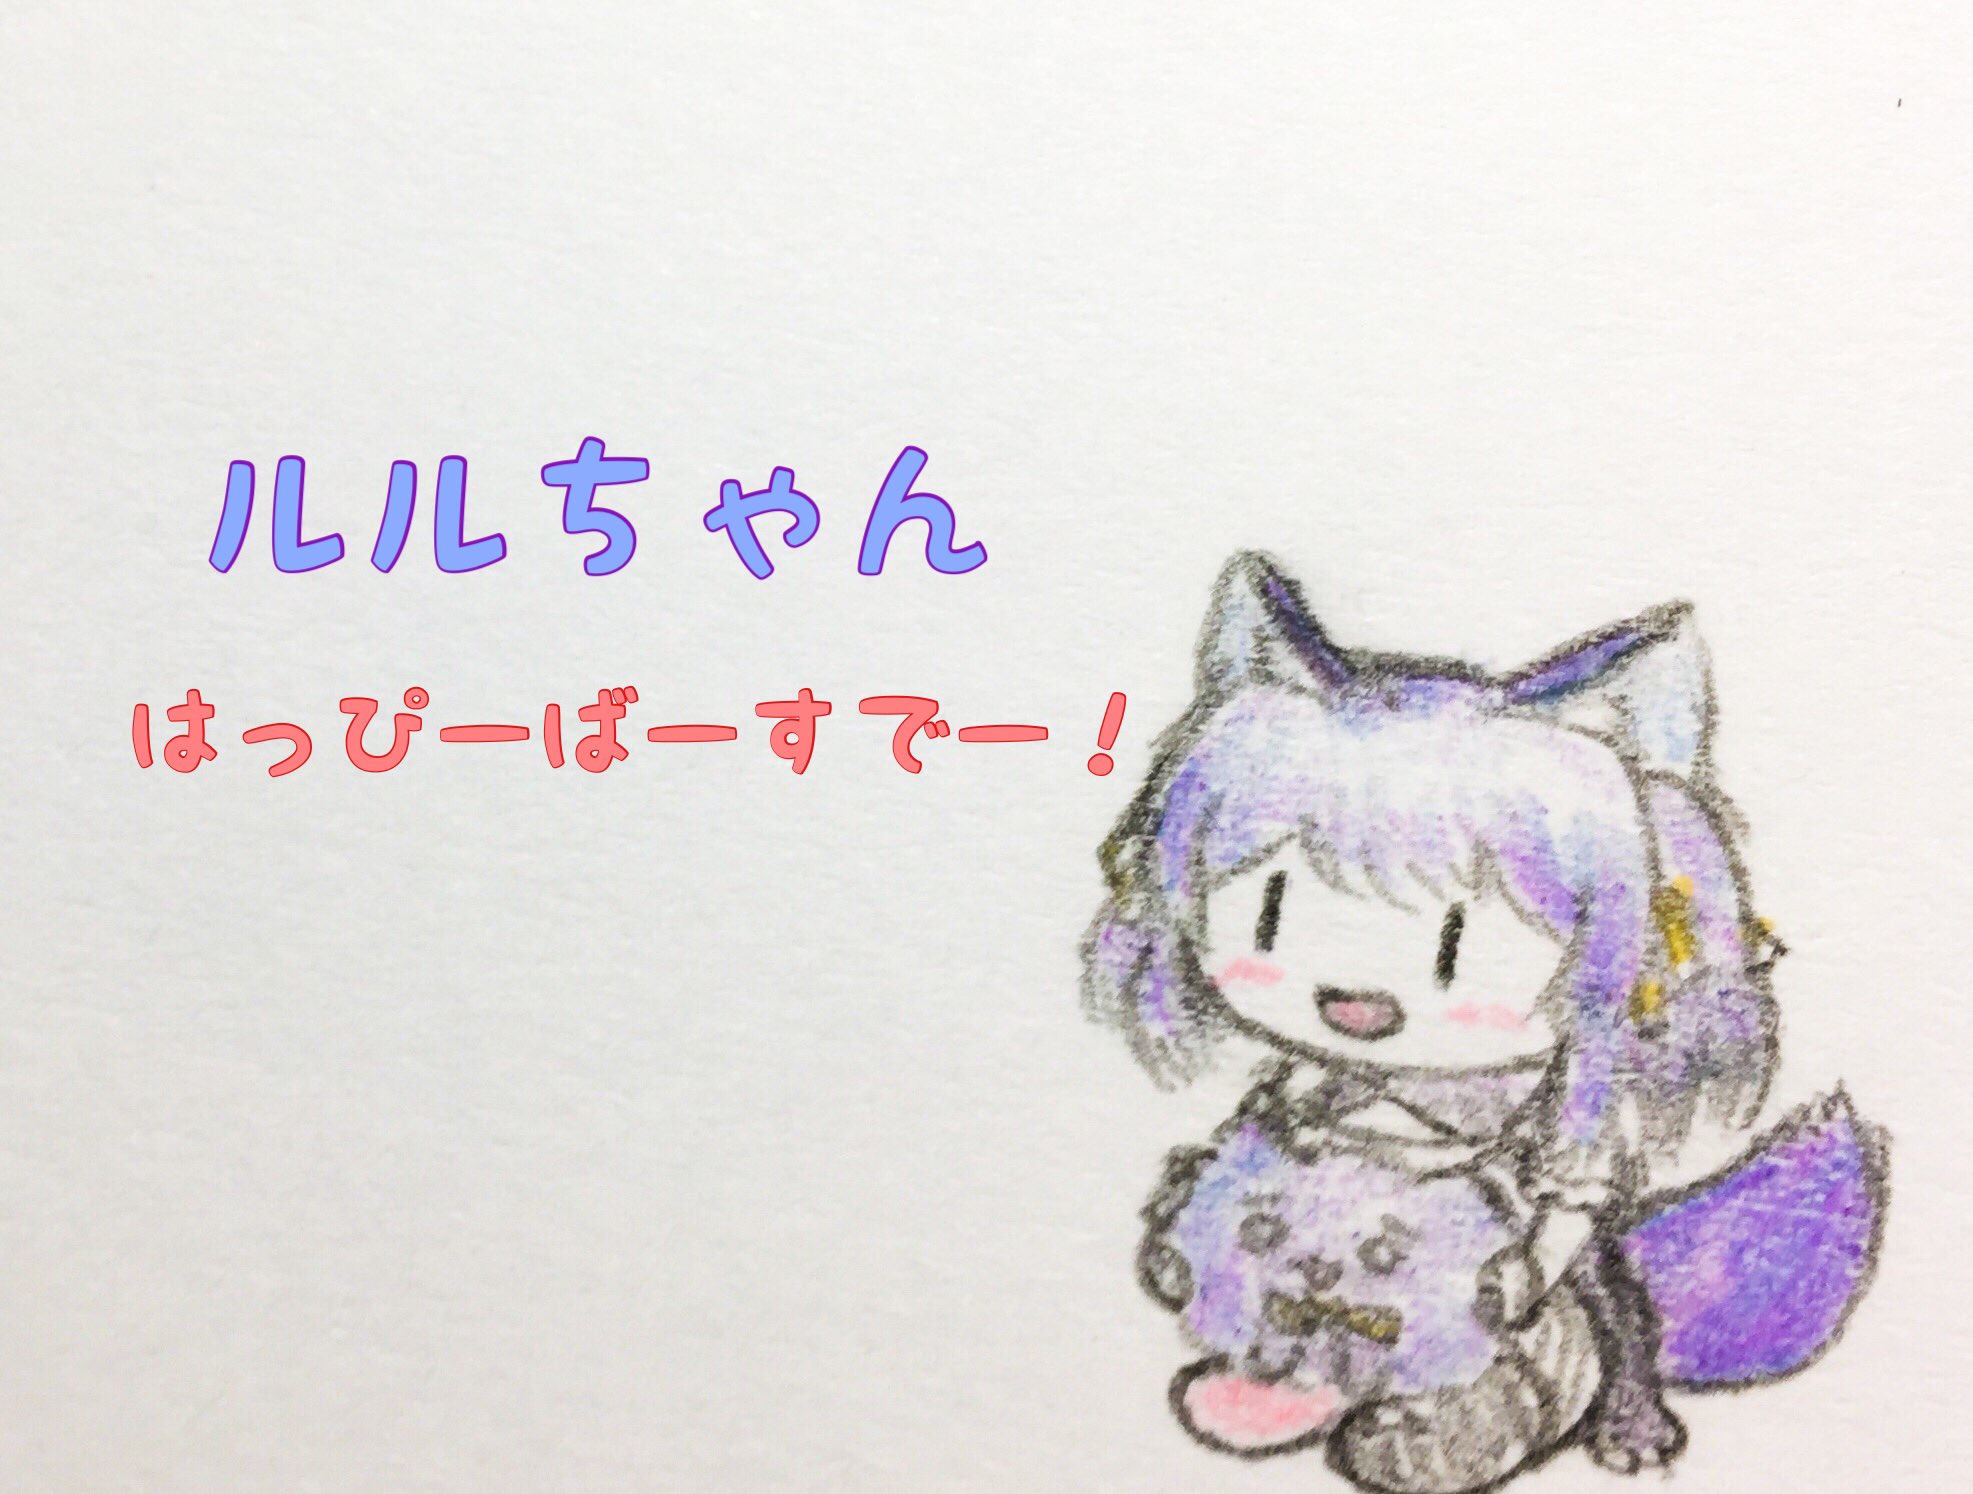 ルルちゃん
はっぴーばーすでー！